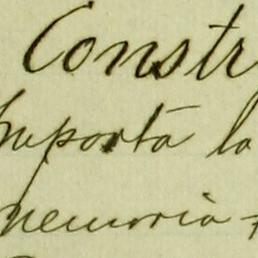 Constr
Importa la
memoria